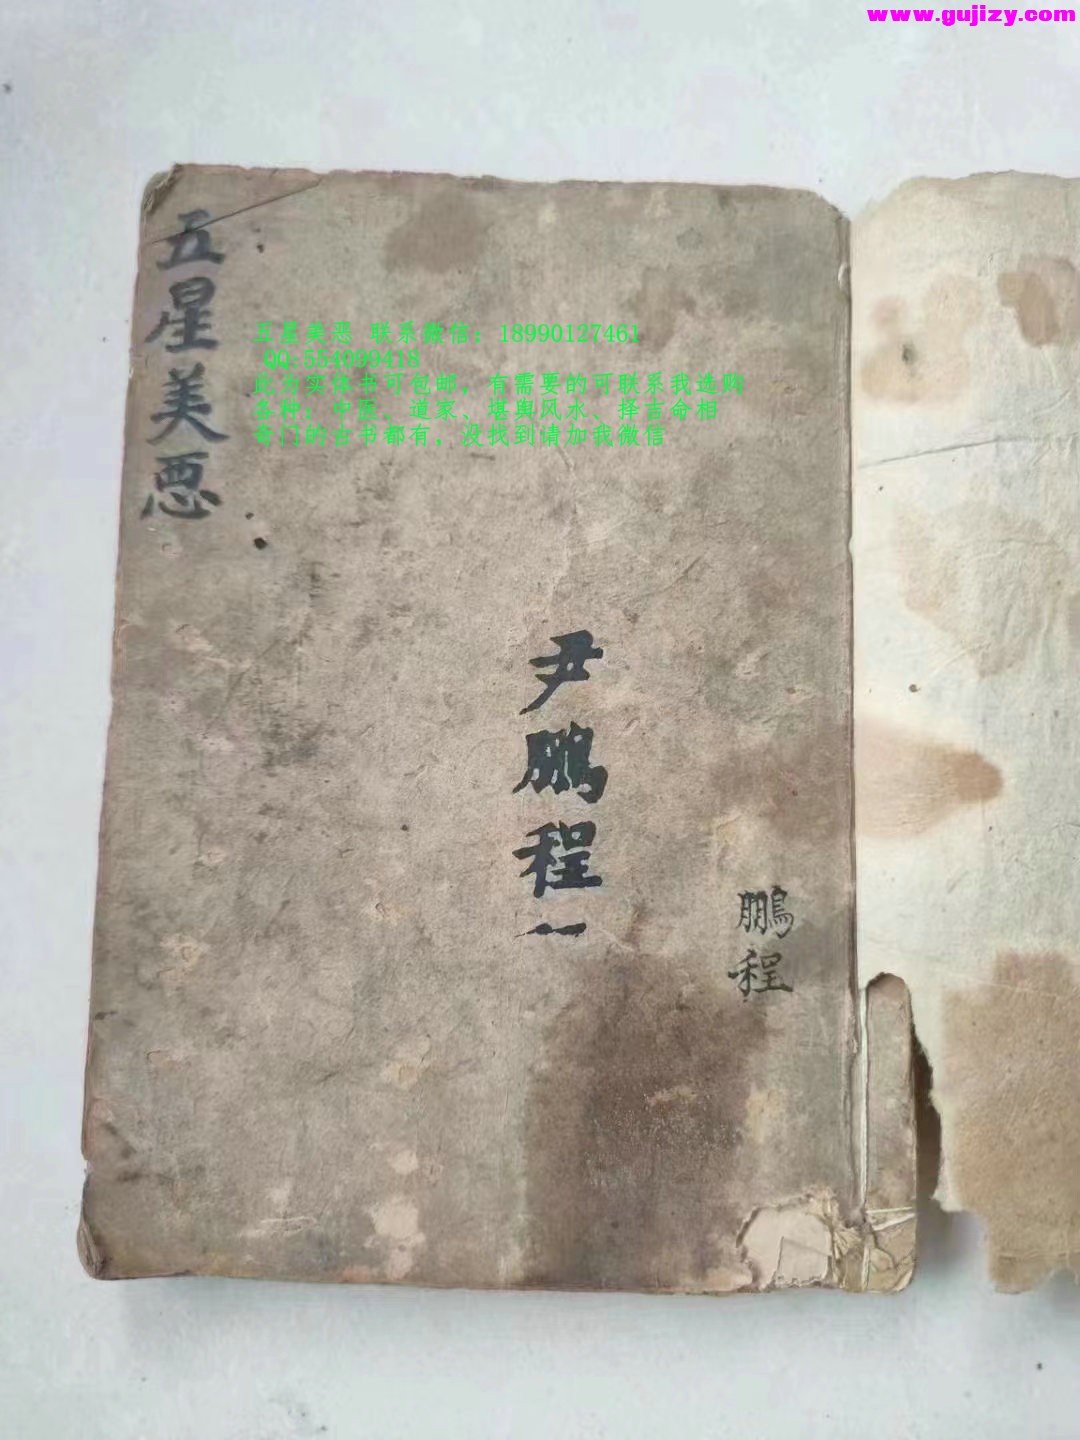 www.gujizy.com
五星美恶 联系微信：18990127461
QQ:554099418
此为实体书可包邮，有需要的可联系我选购
各种：中医、道家、堪舆风水、择吉命相
奇门的古书都有，没找到请加我微信
五星美恶
尹鹏程一
鵬程